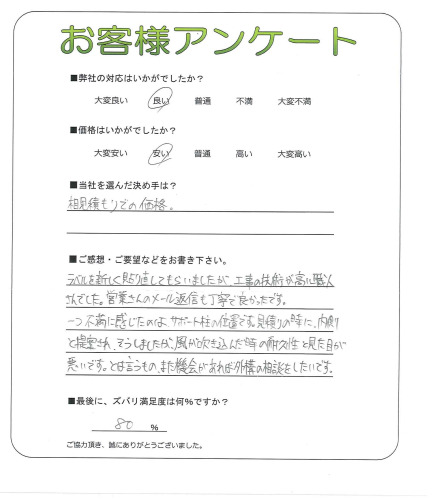 お客様アンケート
■弊社の対応はいかがでしたか？
大変良い 良い 普通 不満 大変不満
■価格はいかがでしたか？
大変安い 安い 普通 高い 大変高い
■当社を選んだ決め手は？
相見積もりでの価格。
■ご感想・ご要望などをお書き下さい。
ラベルを新しく貼り直してもらいましたが、工事の技術が高い職人
さんでした。営業さんのメール返信も丁寧で良かったです。
一つ不満に感じたのは、サポート柱の位置です。見積りの時に、内側
と提案され、そうしましたが、風が吹き込んだ時の耐久性と見た目が
悪いです。とは言うもの、また機会があれば外構の相談をしたいです。
■最後に、ズバリ満足度は何%ですか？
80 %
ご協力頂き、誠にありがとうございました。